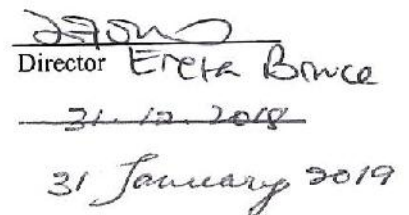 Director Ereta Bruce
31.12.2018
31 January 2019